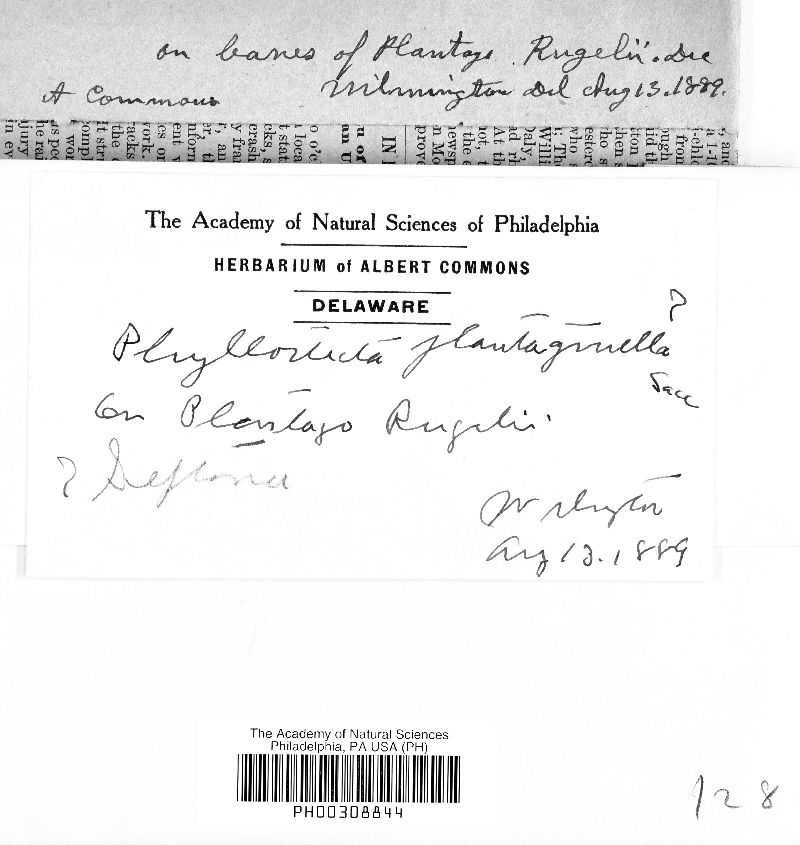 on leaves of Plantago Rugelii. Dec
A Commons Wilmington Del Aug 13. 1889.
The Academy of Natural Sciences of Philadelphia
HERBARIUM of ALBERT COMMONS
DELAWARE
Phyllosticta plantaginella ?
Sacc
On Plantago Rugelii.
? Septoria
Wilmington
Aug 13. 1889
The Academy of Natural Sciences
Philadelphia, PA USA (PH)
PH00308844
128